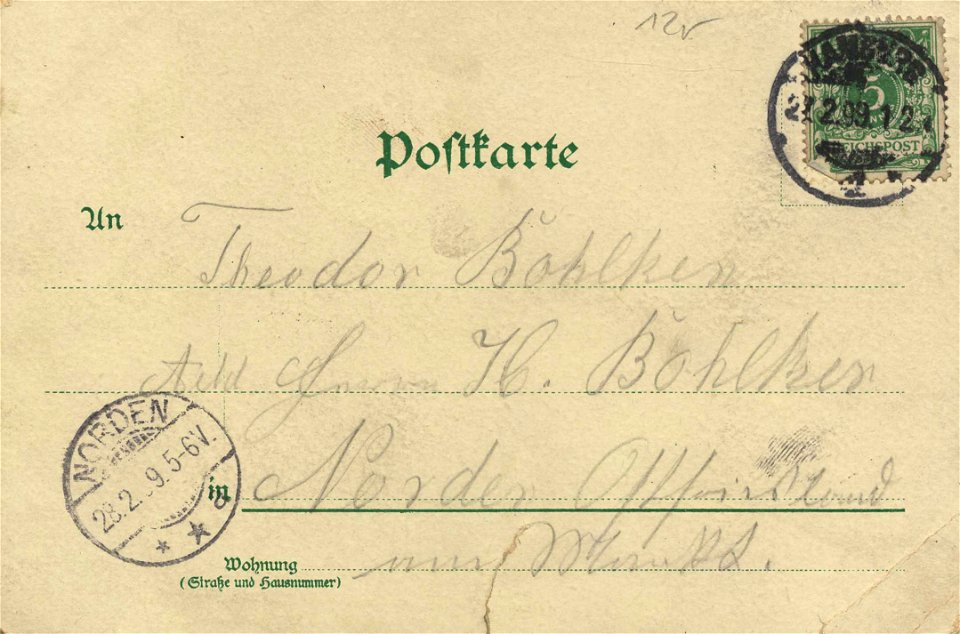 12v
HAMBURG
27.2.99.1-2
1
5
REICHSPOST
Postkarte
An
Theodor Böhlken
Herrn H. Böhlken
NORDEN
28.2.99.5-6V.
in Norden Ostfriesland
Wohnung am Markt.
(Straße und Hausnummer)